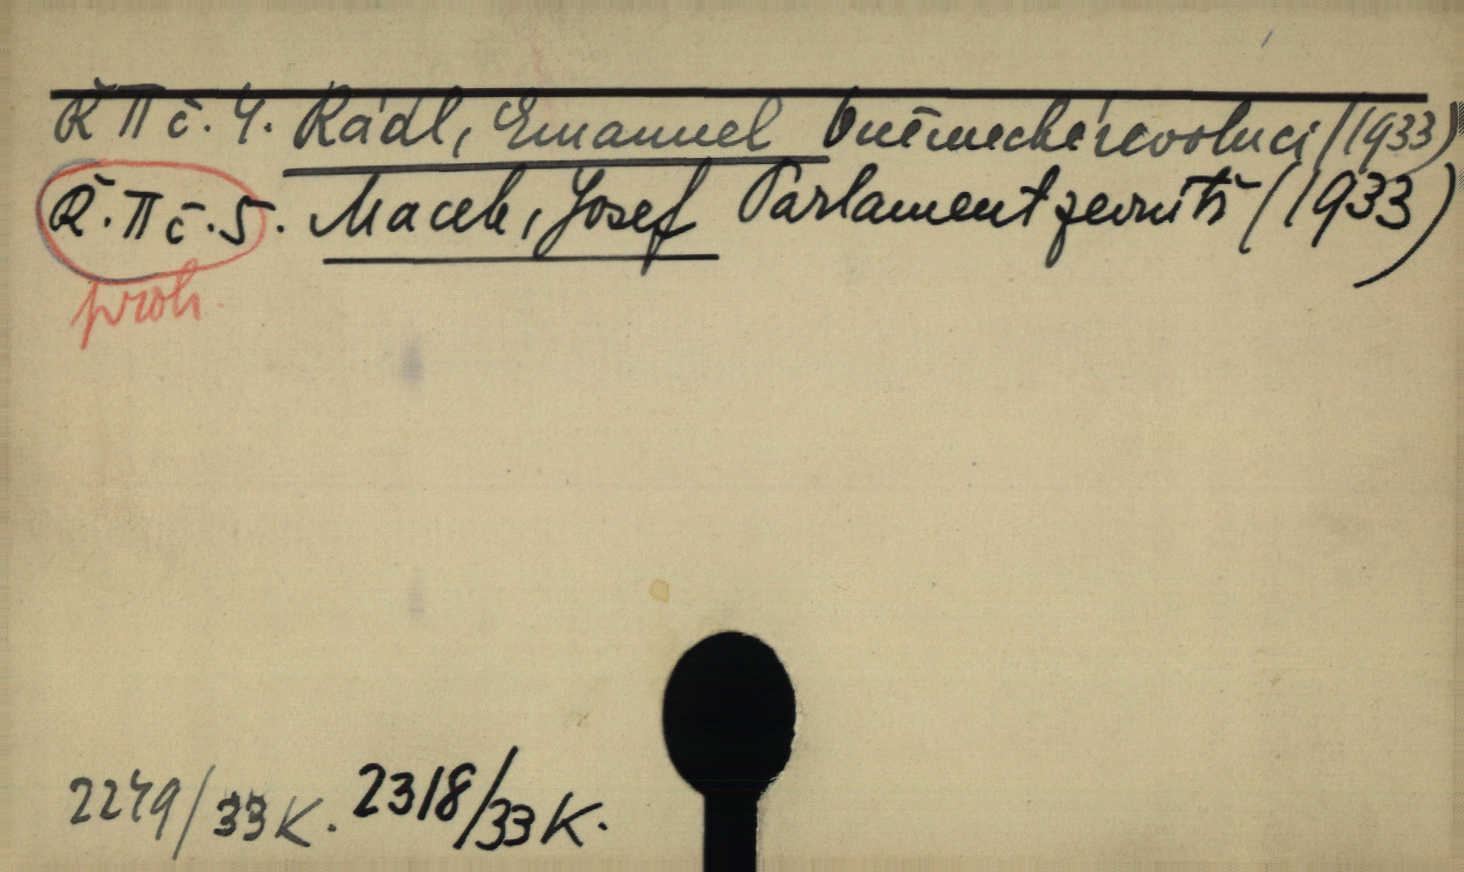 Ř II č. 4. Rádl, Emanuel O německé revoluci (1933)
Ř. II č. 5. Macek, Josef Parlament zevnitř (1933)
proh.
2249/33 K. 2318/33 K.